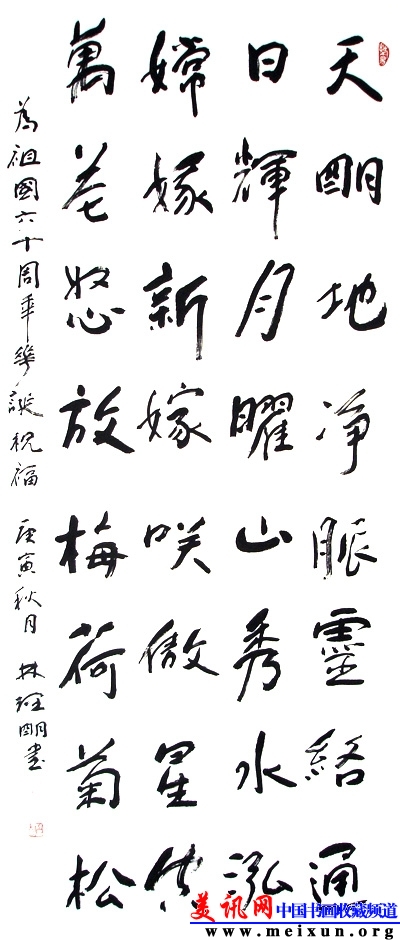 天朙地净脈靈絡通
日輝月曜山秀水泓
嫦新嫁咲傲星
萬花怒放梅荷菊松
為祖國六十周年華誕祝福 庚寅秋月 林朙書
美讯网中国书画收藏频道
www.meixun.org